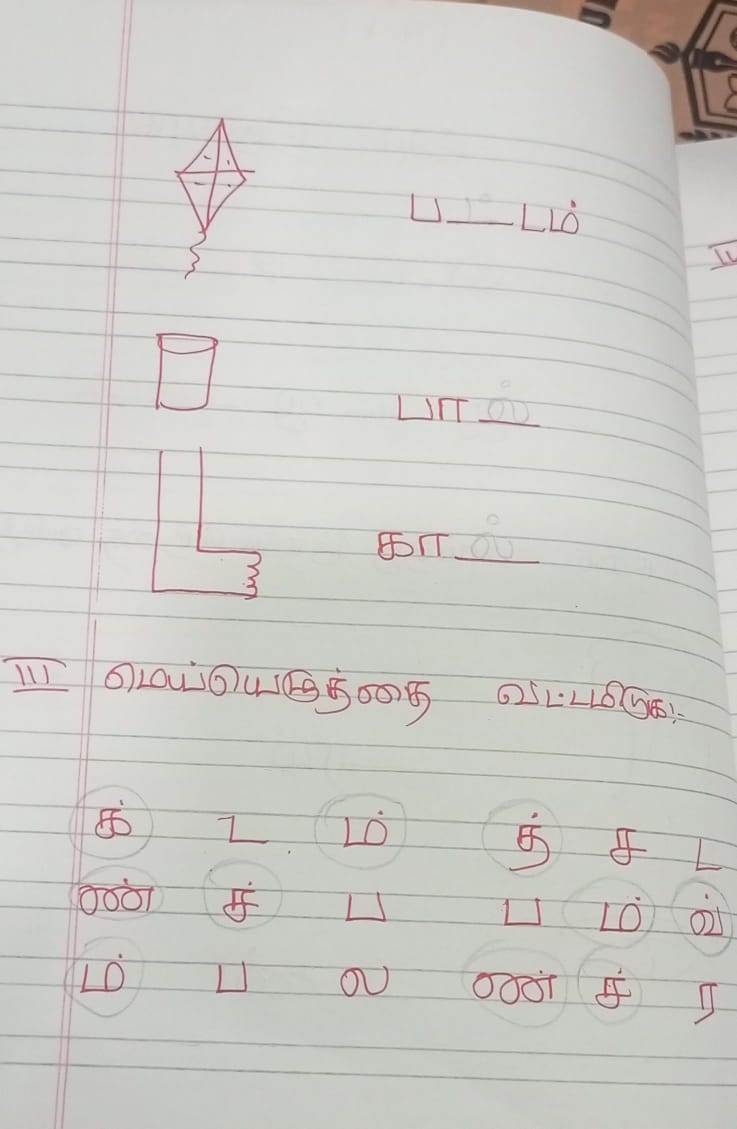 ப___டம்
பால்
கால்
III மெய்யெழுத்தை வட்டமிடுக:-
க் ட ம் த் ச ட
ண் ச் ப ப ம் வ்
ம் ப வ ண் ச் ர